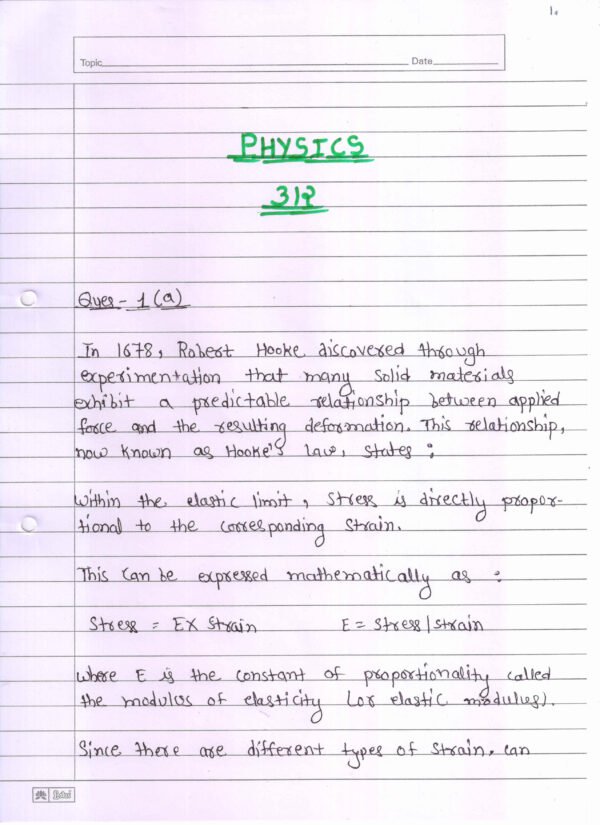 1.
Topic Date
PHYSICS
312
Ques - 1 (a)
In 1678, Robert Hooke discovered through
experimentation that many solid materials
exhibit a predictable relationship between applied
force and the resulting deformation. This relationship,
now known as Hooke's law, states :
Within the elastic limit, stress is directly propor-
tional to the corresponding strain.
This can be expressed mathematically as :
Stress = E x strain E = stress/strain
where E is the constant of proportionality called
the modulus of elasticity (or elastic modulus).
Since there are different types of strain, can